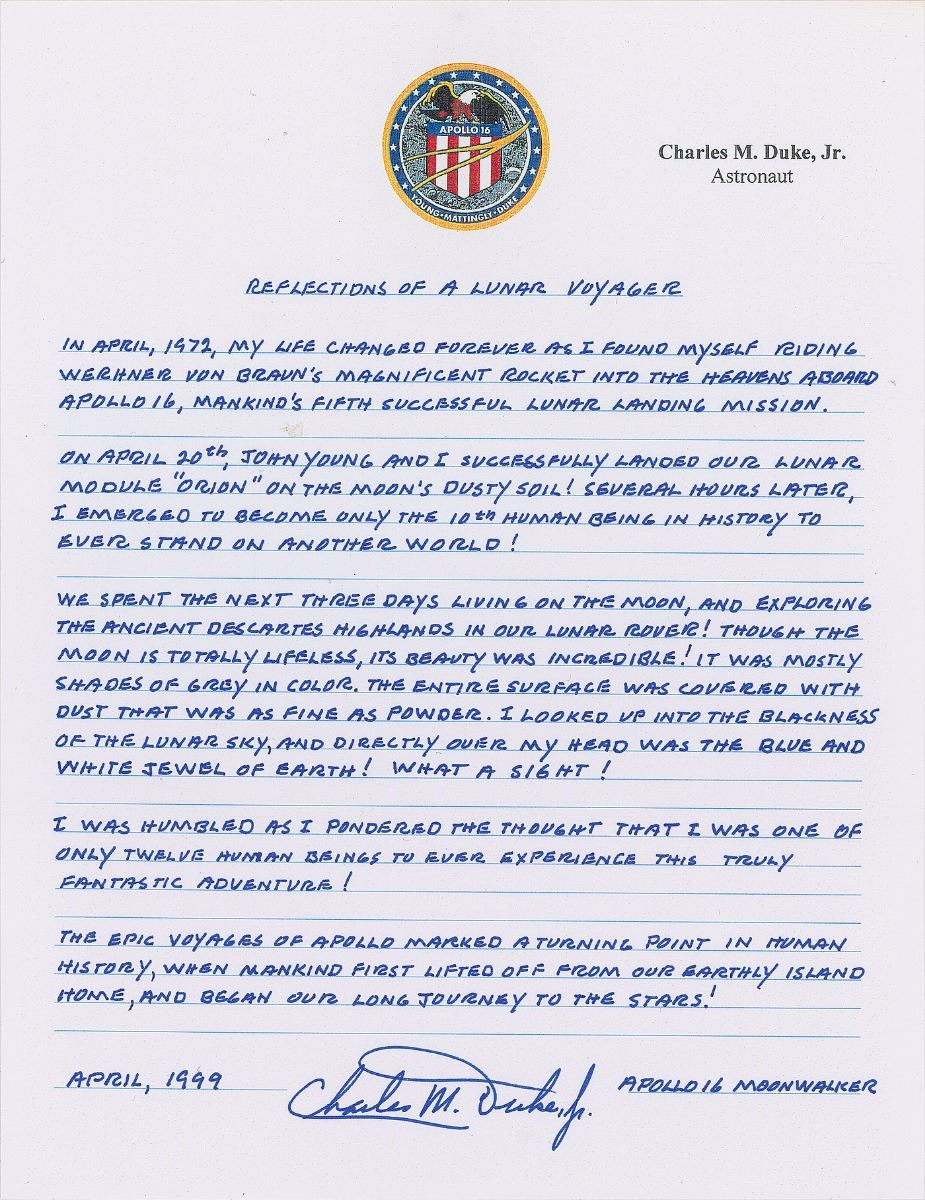 APOLLO 16
YOUNG · MATTINGLY · DUKE
Charles M. Duke, Jr.
Astronaut
REFLECTIONS OF A LUNAR VOYAGER
IN APRIL, 1972, MY LIFE CHANGED FOREVER AS I FOUND MYSELF RIDING
WERHNER VON BRAUN'S MAGNIFICENT ROCKET INTO THE HEAVENS ABOARD
APOLLO 16, MANKIND'S FIFTH SUCCESSFUL LUNAR LANDING MISSION.
ON APRIL 20th, JOHN YOUNG AND I SUCCESSFULLY LANDED OUR LUNAR
MODULE "ORION" ON THE MOON'S DUSTY SOIL! SEVERAL HOURS LATER,
I EMERGED TO BECOME ONLY THE 10th HUMAN BEING IN HISTORY TO
EVER STAND ON ANOTHER WORLD!
WE SPENT THE NEXT THREE DAYS LIVING ON THE MOON, AND EXPLORING
THE ANCIENT DESCARTES HIGHLANDS IN OUR LUNAR ROVER! THOUGH THE
MOON IS TOTALLY LIFELESS, ITS BEAUTY WAS INCREDIBLE! IT WAS MOSTLY
SHADES OF GREY IN COLOR. THE ENTIRE SURFACE WAS COVERED WITH
DUST THAT WAS AS FINE AS POWDER. I LOOKED UP INTO THE BLACKNESS
OF THE LUNAR SKY, AND DIRECTLY OVER MY HEAD WAS THE BLUE AND
WHITE JEWEL OF EARTH! WHAT A SIGHT!
I WAS HUMBLED AS I PONDERED THE THOUGHT THAT I WAS ONE OF
ONLY TWELVE HUMAN BEINGS TO EVER EXPERIENCE THIS TRULY
FANTASTIC ADVENTURE!
THE EPIC VOYAGES OF APOLLO MARKED A TURNING POINT IN HUMAN
HISTORY, WHEN MANKIND FIRST LIFTED OFF FROM OUR EARTHLY ISLAND
HOME, AND BEGAN OUR LONG JOURNEY TO THE STARS!
APRIL, 1999 Charles M. Duke, Jr. APOLLO 16 MOONWALKER